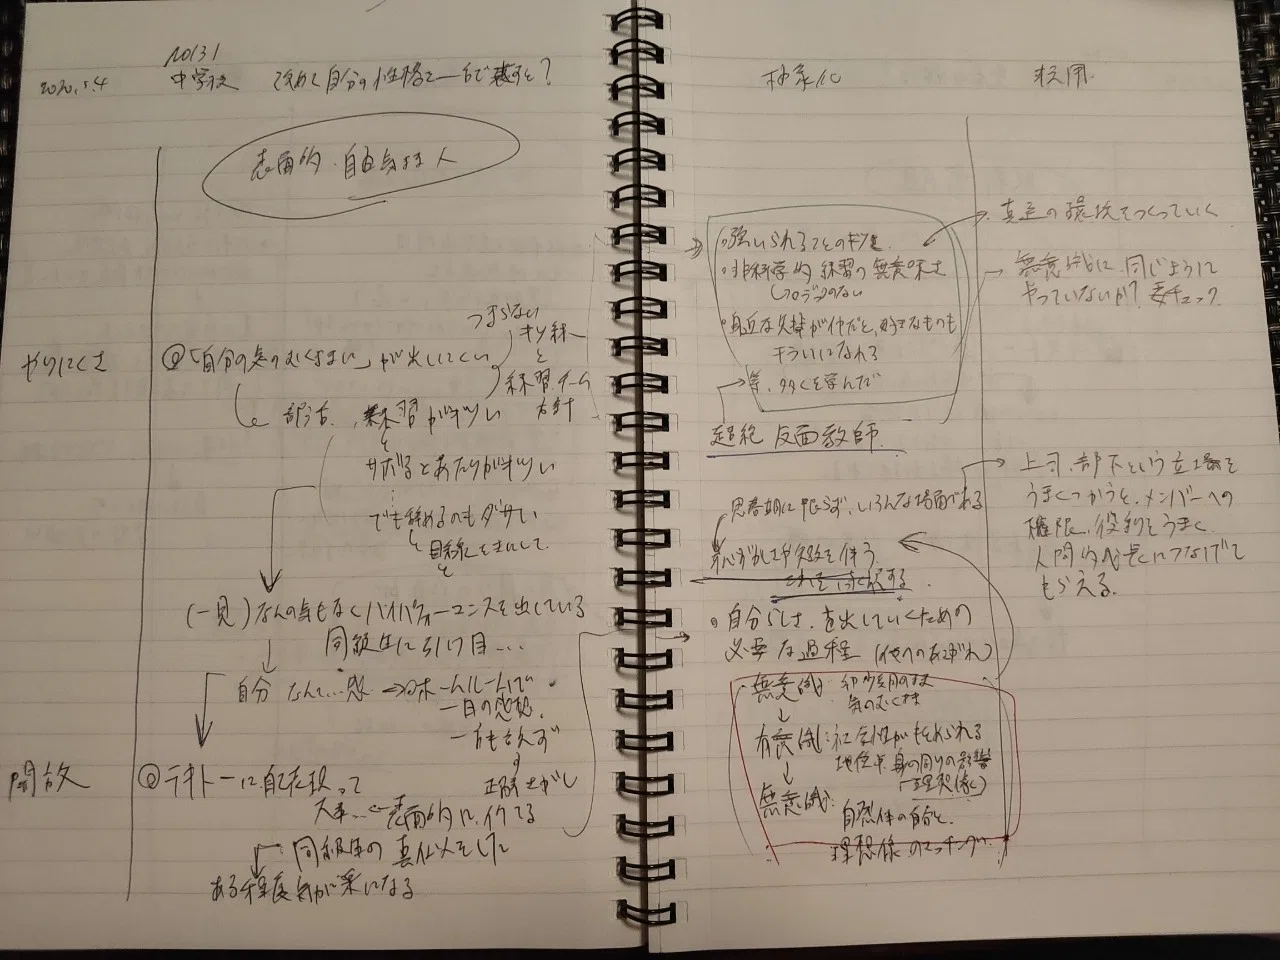 2020.5.4
No131
中学校 改めて自分の性格を一言で表すと?
表面的・自由気まま人
やりにくさ
◎「自分の気のむくまま」が出しにくい
つまらない
キツ練
と
練習、チーム
方針
部活、練習がキツい
と
サボるとあたりがキツい
でも辞めるのもダサい
と目線を気にして
(一見)なんの気もなくハイパフォーマンスを出している
同級生に引け目…
自分なんて…感 → ホームルームで
一日の感想
一言も言えず
正解さがし
開放
◎テキトーに自己表現って
大事… ← 表面的にイケてる
同級生の真似をした
ある程度気が楽になる
抽象化
・強いられることのキツさ
・非科学的練習の無意味さ
ロジックのない
・身近な先輩が仲だと、好きなものも
キライになれる
等、多くを学んだ
超絶 反面教師
思春期に限らず、いろんな場面である
恥ずかしさや失敗を伴う
これを 克服する
・自分らしさを出していくための
必要な過程(他へのあこがれ)
無意識: 幼少期のまま
気のむくまま
↓
有意識: 社会性がもとめられる
地位や身の周りの影響
(理想像)
↓
無意識: 自然体の自分と
理想像のマッチング
転用
真逆の環境をつくっていく
無意識に同じように
やっていないか? 要チェック
上司、部下という立場を
うまくつかうと、メンバーへの
権限、役割をうまく
人間的成長につなげて
もらえる。